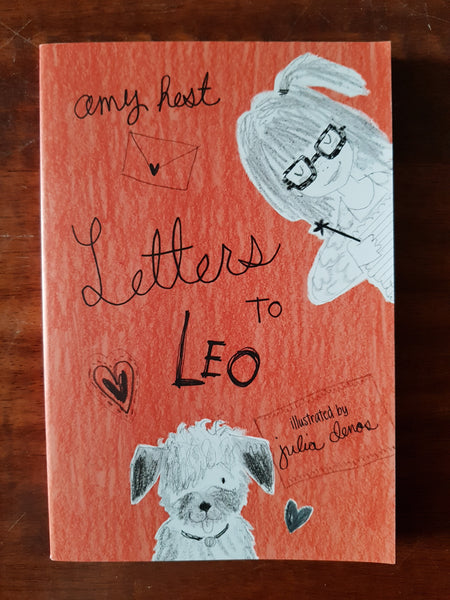 amy hest
Letters
TO
LEO
illustrated by
julia denos